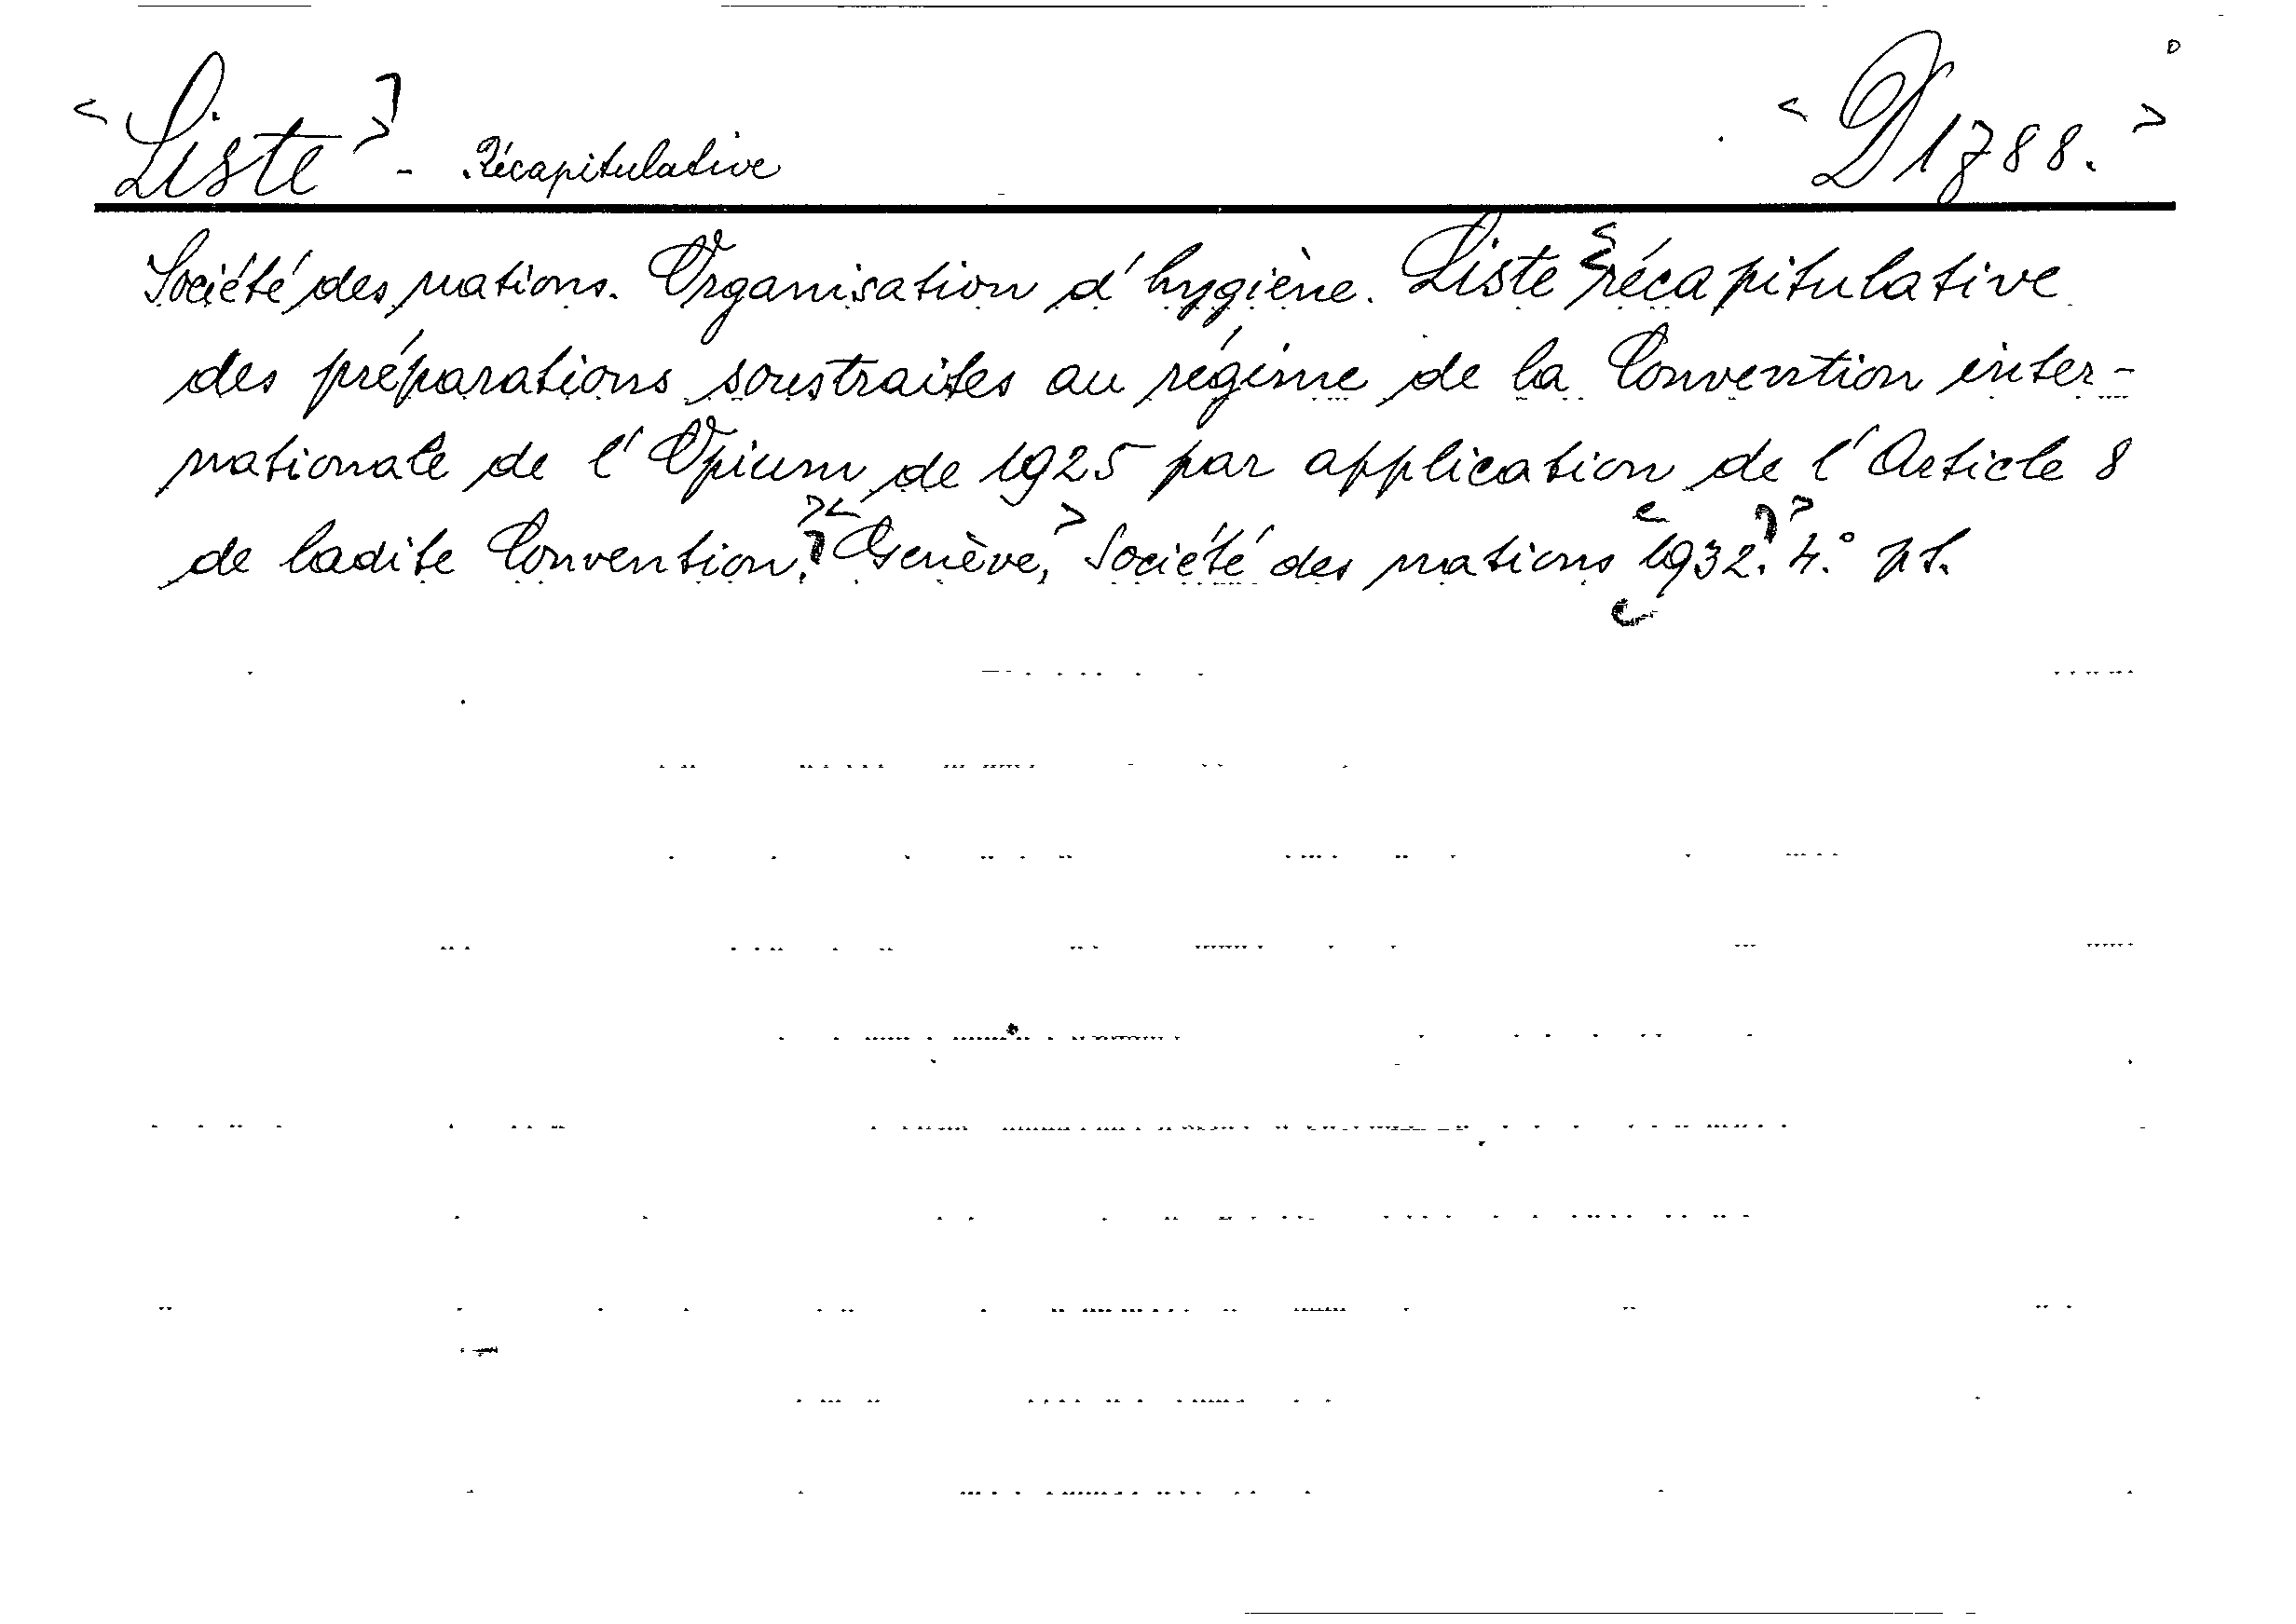 Liste - Récapitulative D1788.
Société des nations. Organisation d'hygiène. Liste récapitulative
des préparations soustraites au régime de la Convention inter-
nationale de l'Opium de 1925 par application de l'Article 8
de ladite Convention. Genève, Société des nations 1932. 4.°